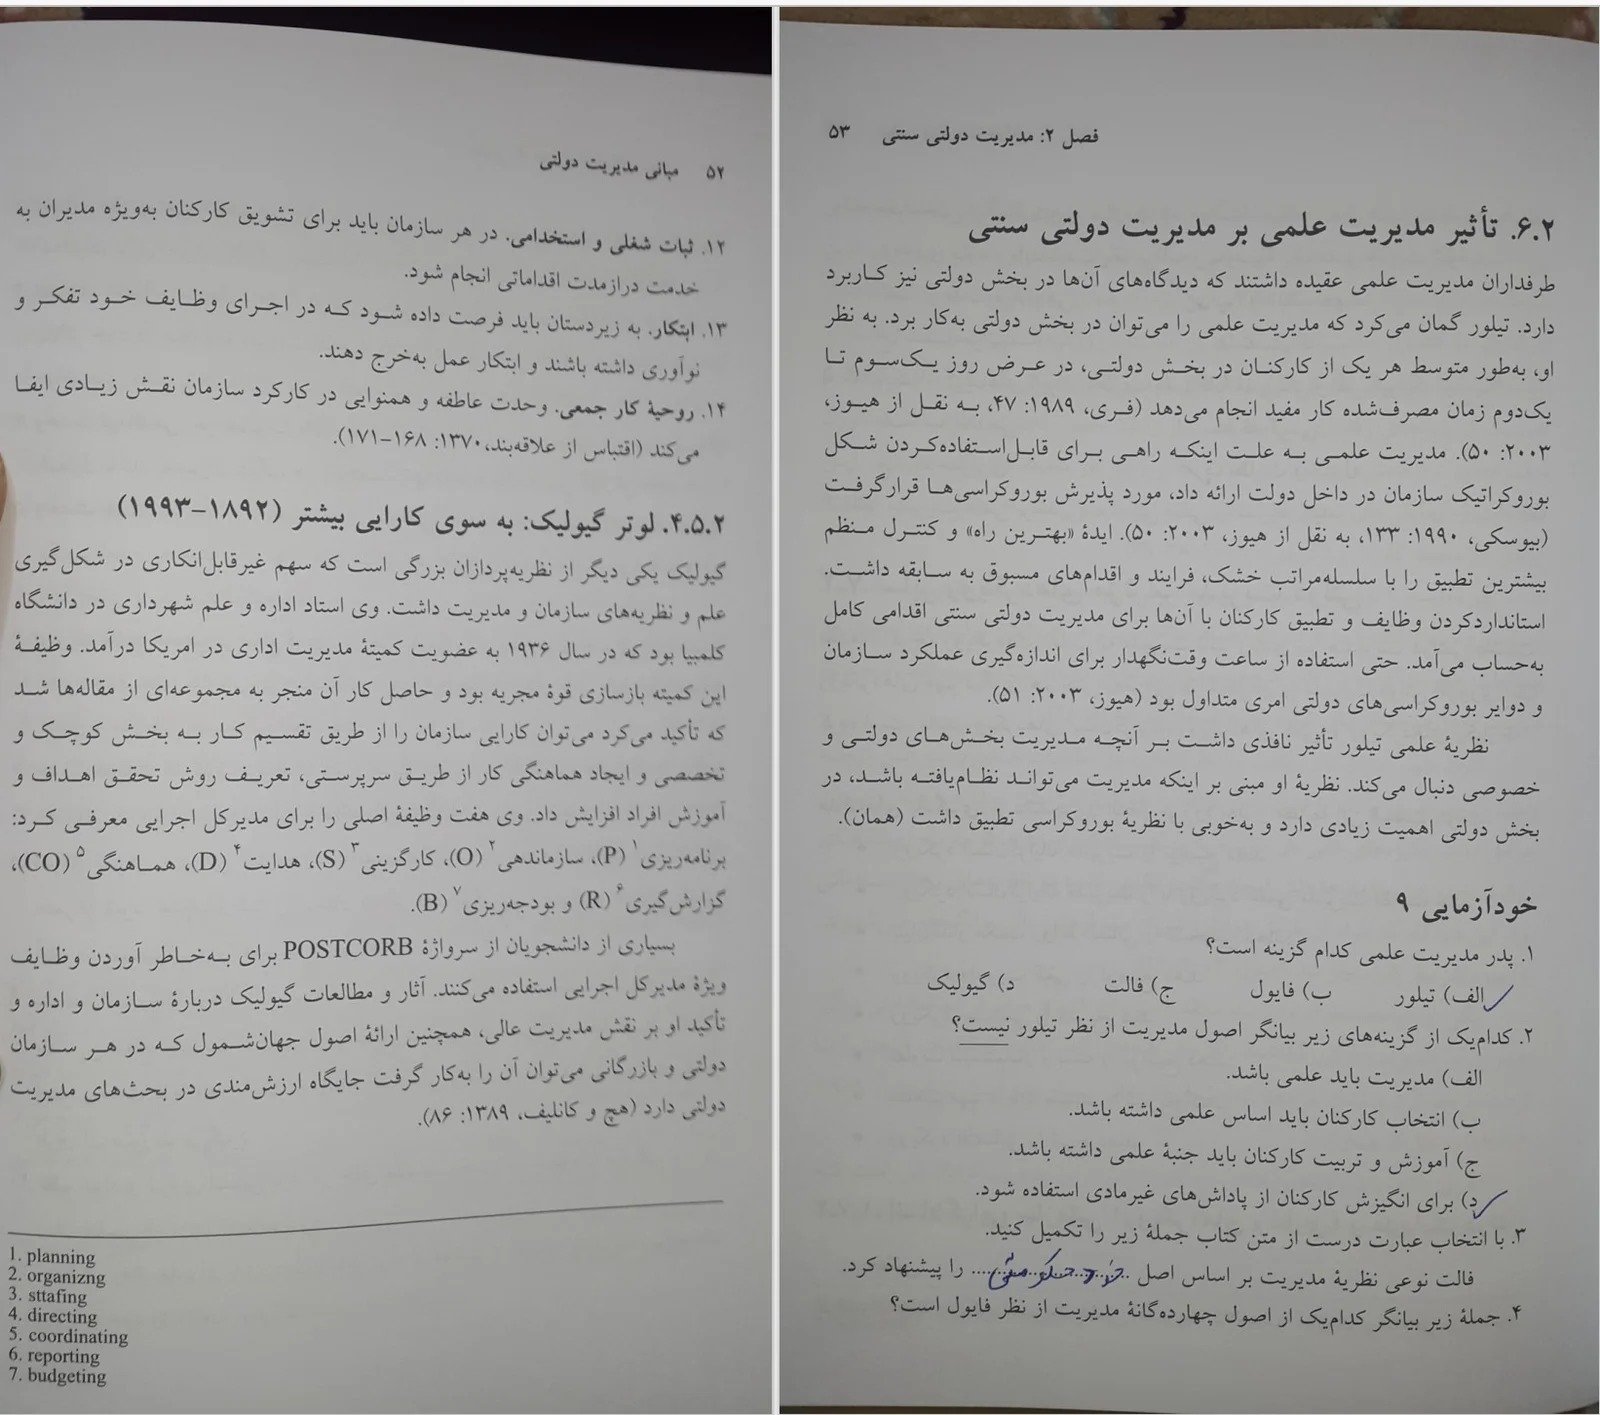 ۵۲ مبانی مدیریت دولتی
۱۲. ثبات شغلی و استخدامی. در هر سازمان باید برای تشویق کارکنان به‌ویژه مدیران به
خدمت درازمدت اقداماتی انجام شود.
۱۳. ابتکار. به زیردستان باید فرصت داده شود که در اجرای وظایف خود تفکر و
نوآوری داشته باشند و ابتکار عمل به‌خرج دهند.
۱۴. روحیۀ کار جمعی. وحدت عاطفه و همنوایی در کارکرد سازمان نقش زیادی ایفا
می‌کند (اقتباس از علاقه‌بند، ۱۳۷۰: ۱۶۸-۱۷۱).
۴.۵.۲. لوتر گیولیک: به سوی کارایی بیشتر (۱۸۹۲-۱۹۹۳)
گیولیک یکی دیگر از نظریه‌پردازان بزرگی است که سهم غیرقابل‌انکاری در شکل‌گیری
علم و نظریه‌های سازمان و مدیریت داشت. وی استاد اداره و علم شهرداری در دانشگاه
کلمبیا بود که در سال ۱۹۳۶ به عضویت کمیتۀ مدیریت اداری در امریکا درآمد. وظیفۀ
این کمیته بازسازی قوۀ مجریه بود و حاصل کار آن منجر به مجموعه‌ای از مقاله‌ها شد
که تأکید می‌کرد می‌توان کارایی سازمان را از طریق تقسیم کار به بخش کوچک و
تخصصی و ایجاد هماهنگی کار از طریق سرپرستی، تعریف روش تحقق اهداف و
آموزش افراد افزایش داد. وی هفت وظیفۀ اصلی را برای مدیرکل اجرایی معرفی کرد:
برنامه‌ریزی۱ (P)، سازماندهی۲ (O)، کارگزینی۳ (S)، هدایت۴ (D)، هماهنگی۵ (CO)،
گزارش‌گیری۶ (R) و بودجه‌ریزی۷ (B).
بسیاری از دانشجویان از سرواژۀ POSTCORB برای به‌خاطر آوردن وظایف
ویژۀ مدیرکل اجرایی استفاده می‌کنند. آثار و مطالعات گیولیک دربارۀ سازمان و اداره و
تأکید او بر نقش مدیریت عالی، همچنین ارائۀ اصول جهان‌شمول که در هر سازمان
دولتی و بازرگانی می‌توان آن را به‌کار گرفت جایگاه ارزش‌مندی در بحث‌های مدیریت
دولتی دارد (هچ و کانلیف، ۱۳۸۹: ۸۶).
1. planning
2. organizng
3. sttafing
4. directing
5. coordinating
6. reporting
7. budgeting
فصل ۲: مدیریت دولتی سنتی ۵۳
۶.۲. تأثیر مدیریت علمی بر مدیریت دولتی سنتی
طرفداران مدیریت علمی عقیده داشتند که دیدگاه‌های آن‌ها در بخش دولتی نیز کاربرد
دارد. تیلور گمان می‌کرد که مدیریت علمی را می‌توان در بخش دولتی به‌کار برد. به نظر
او، به‌طور متوسط هر یک از کارکنان در بخش دولتی، در عرض روز یک‌سوم تا
یک‌دوم زمان مصرف‌شده کار مفید انجام می‌دهد (فری، ۱۹۸۹: ۴۷، به نقل از هیوز،
۲۰۰۳: ۵۰). مدیریت علمی به علت اینکه راهی برای قابل‌استفاده‌کردن شکل
بوروکراتیک سازمان در داخل دولت ارائه داد، مورد پذیرش بوروکراسی‌ها قرارگرفت
(بیوسکی، ۱۹۹۰: ۱۳۳، به نقل از هیوز، ۲۰۰۳: ۵۰). ایدۀ «بهترین راه» و کنترل منظم
بیشترین تطبیق را با سلسله‌مراتب خشک، فرایند و اقدام‌های مسبوق به سابقه داشت.
استانداردکردن وظایف و تطبیق کارکنان با آن‌ها برای مدیریت دولتی سنتی اقدامی کامل
به‌حساب می‌آمد. حتی استفاده از ساعت وقت‌نگهدار برای اندازه‌گیری عملکرد سازمان
و دوایر بوروکراسی‌های دولتی امری متداول بود (هیوز، ۲۰۰۳: ۵۱).
نظریۀ علمی تیلور تأثیر نافذی داشت بر آنچه مدیریت بخش‌های دولتی و
خصوصی دنبال می‌کند. نظریۀ او مبنی بر اینکه مدیریت می‌تواند نظام‌یافته باشد، در
بخش دولتی اهمیت زیادی دارد و به‌خوبی با نظریۀ بوروکراسی تطبیق داشت (همان).
خودآزمایی ۹
۱. پدر مدیریت علمی کدام گزینه است؟
الف) تیلور ب) فایول ج) فالت د) گیولیک
۲. کدام‌یک از گزینه‌های زیر بیانگر اصول مدیریت از نظر تیلور نیست؟
الف) مدیریت باید علمی باشد.
ب) انتخاب کارکنان باید اساس علمی داشته باشد.
ج) آموزش و تربیت کارکنان باید جنبۀ علمی داشته باشد.
د) برای انگیزش کارکنان از پاداش‌های غیرمادی استفاده شود.
۳. با انتخاب عبارت درست از متن کتاب جملۀ زیر را تکمیل کنید.
فالت نوعی نظریۀ مدیریت بر اساس اصل خودحکومتی را پیشنهاد کرد.
۴. جملۀ زیر بیانگر کدام‌یک از اصول چهارده‌گانۀ مدیریت از نظر فایول است؟